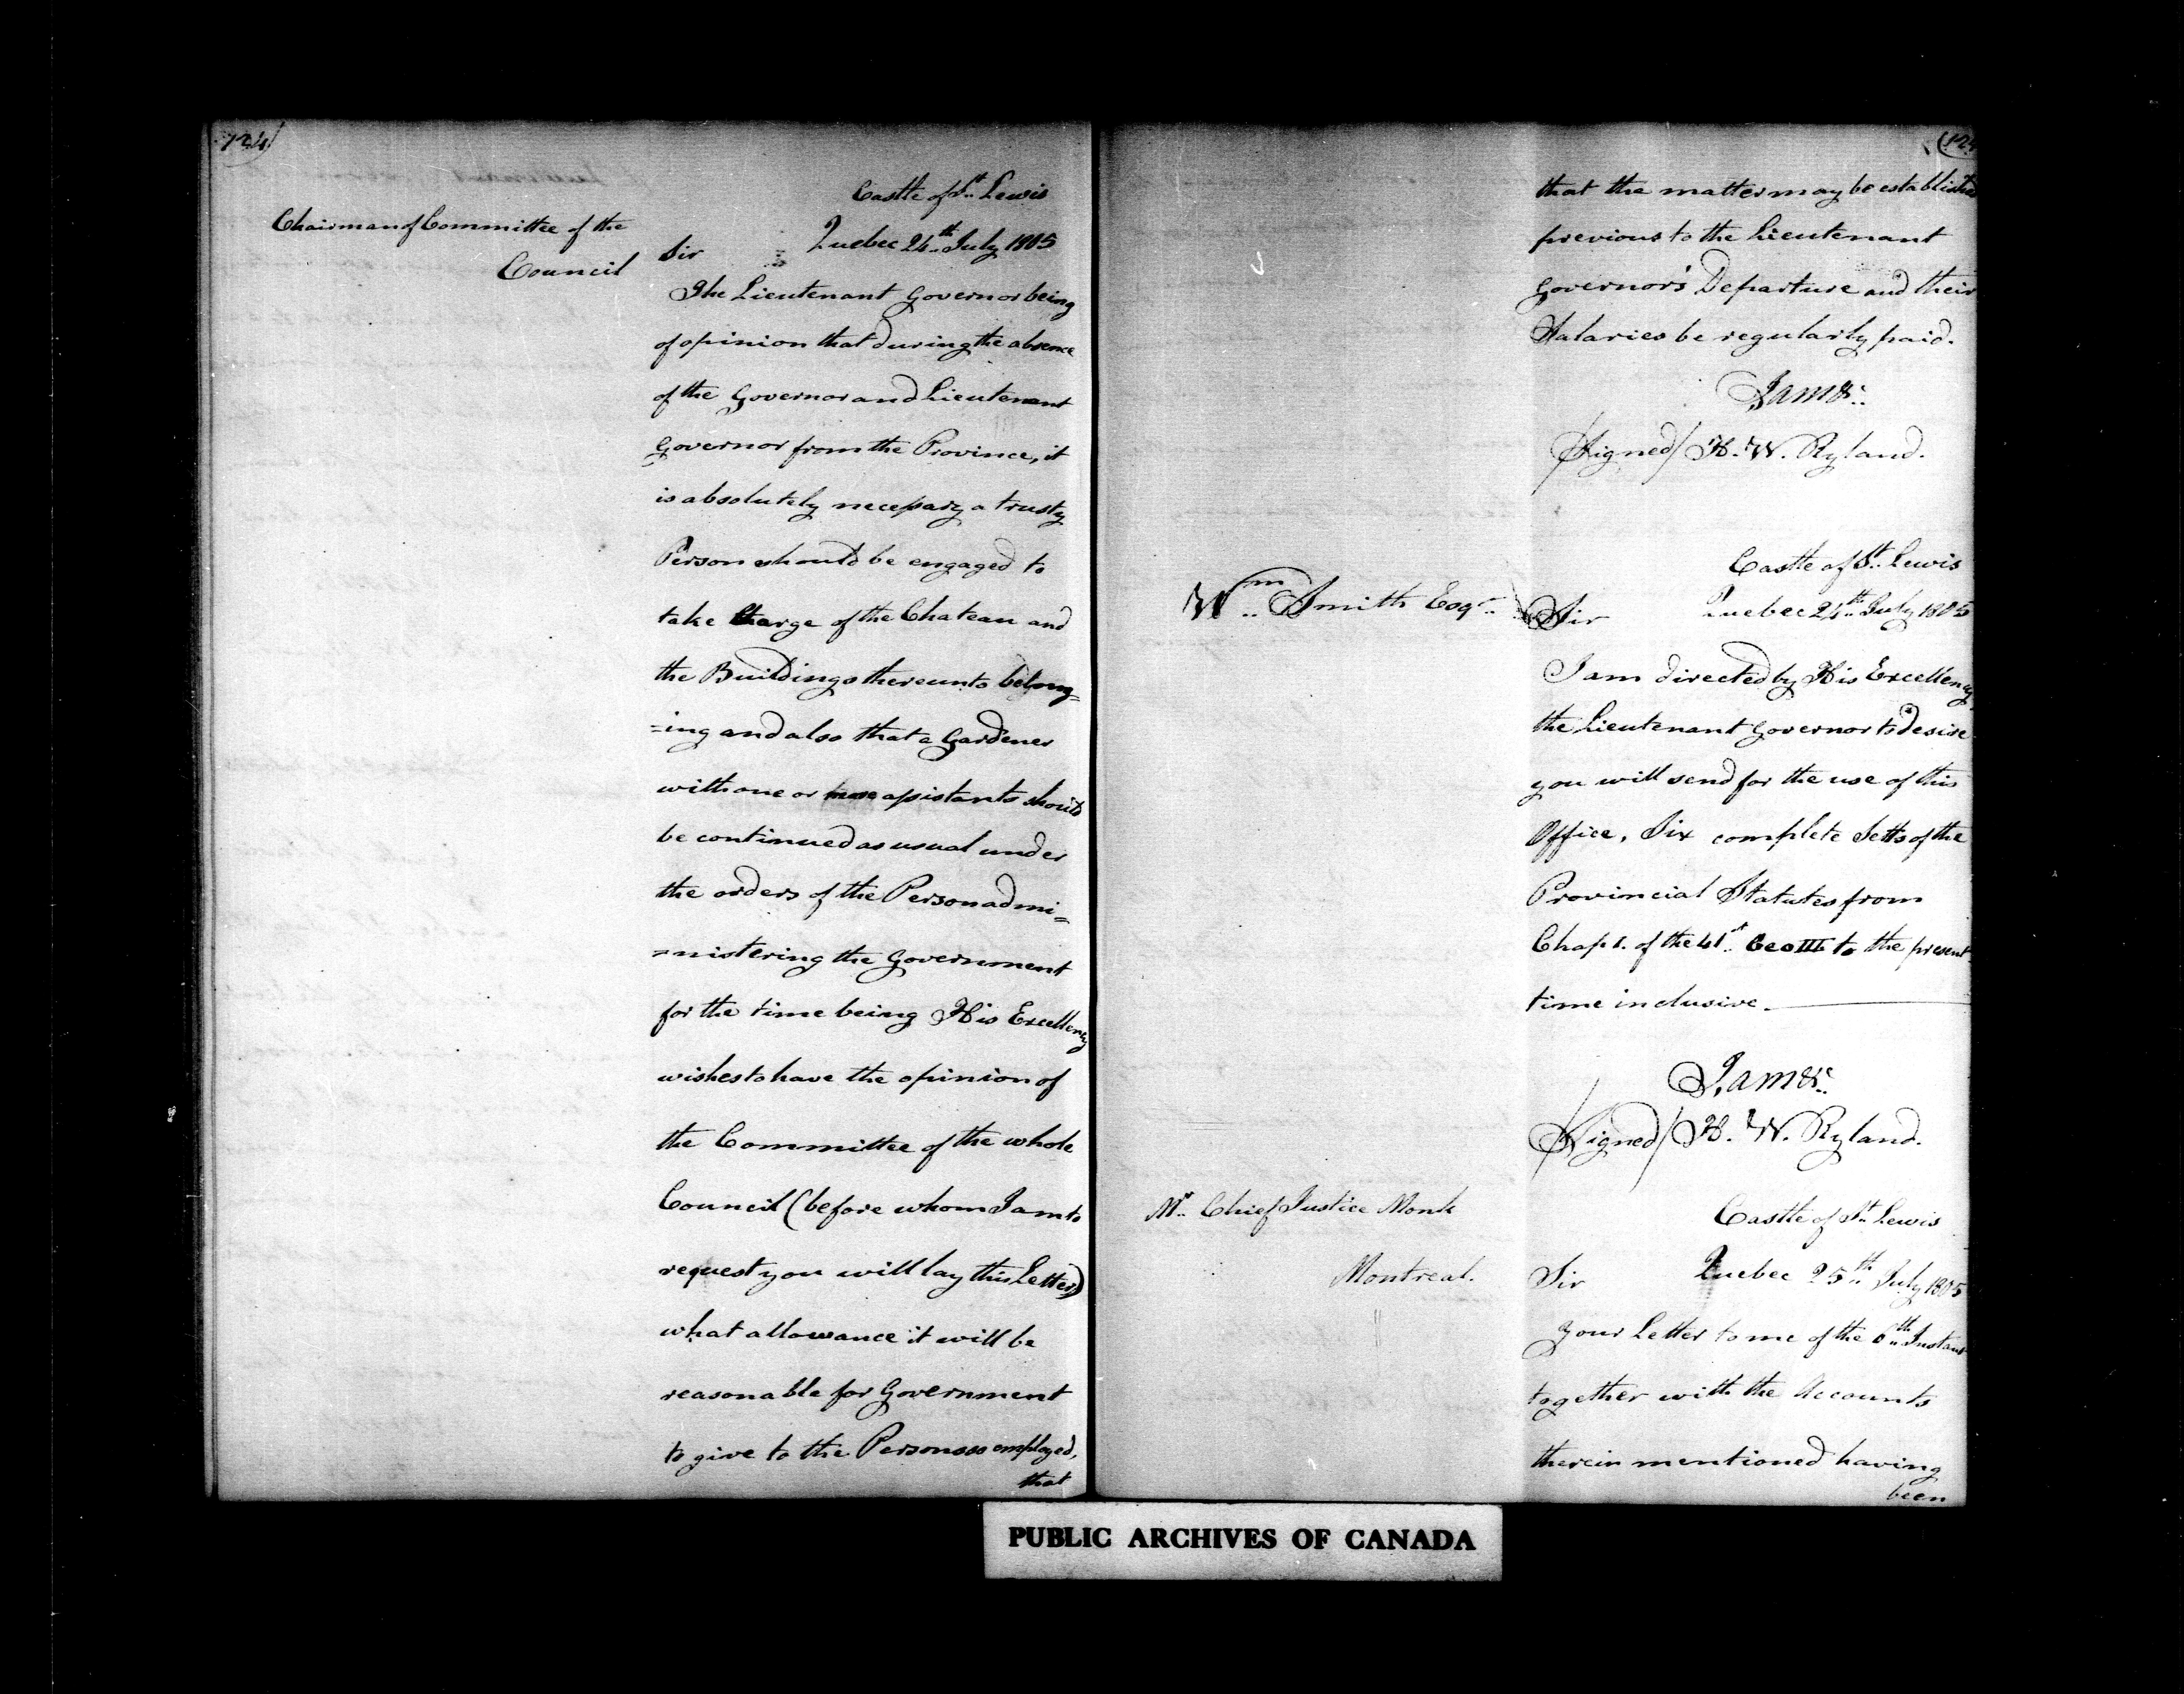 124)
Castle of St. Lewis
Chairman of Committee of the
Council
Sir Quebec 24th July 1805
The Lieutenant Governor being
of opinion that during the absence
of the Governor and Lieutenant
Governor from the Province, it
is absolutely necessary a trusty
Person should be engaged to
take Charge of the Chateau and
the Buildings thereunto belong=
=ing and also that a Gardener
with one or more assistants should
be continued as usual under
the orders of the Person admi=
=nistering the Government
for the time being His Excellency
wishes to have the opinion of
the Committee of the whole
Council (before whom I am to
request you will lay this Letter)
what allowance it will be
reasonable for Government
to give to the Persons so employed,
that
that the matter may be established
previous to the Lieutenant
Governor's Departure and their
Salaries be regularly paid.
I am &c:
/Signed/ H. W. Ryland.
Castle of St. Lewis
Wm. Smith Esqr.
Sir Quebec 24th July 1805
I am directed by His Excellency
the Lieutenant Governor to desire
you will send for the use of this
Office, Six complete Setts of the
Provincial Statutes from
Chap 1. of the 41st. Geo III to the present
time inclusive.
I am &c:
/Signed/ H. W. Ryland.
Mr. Chief Justice Monk
Montreal.
Castle of St. Lewis
Sir Quebec 25th July 1805
Your Letter to me of the Instant
together with the Accounts
therein mentioned having
been
PUBLIC ARCHIVES OF CANADA